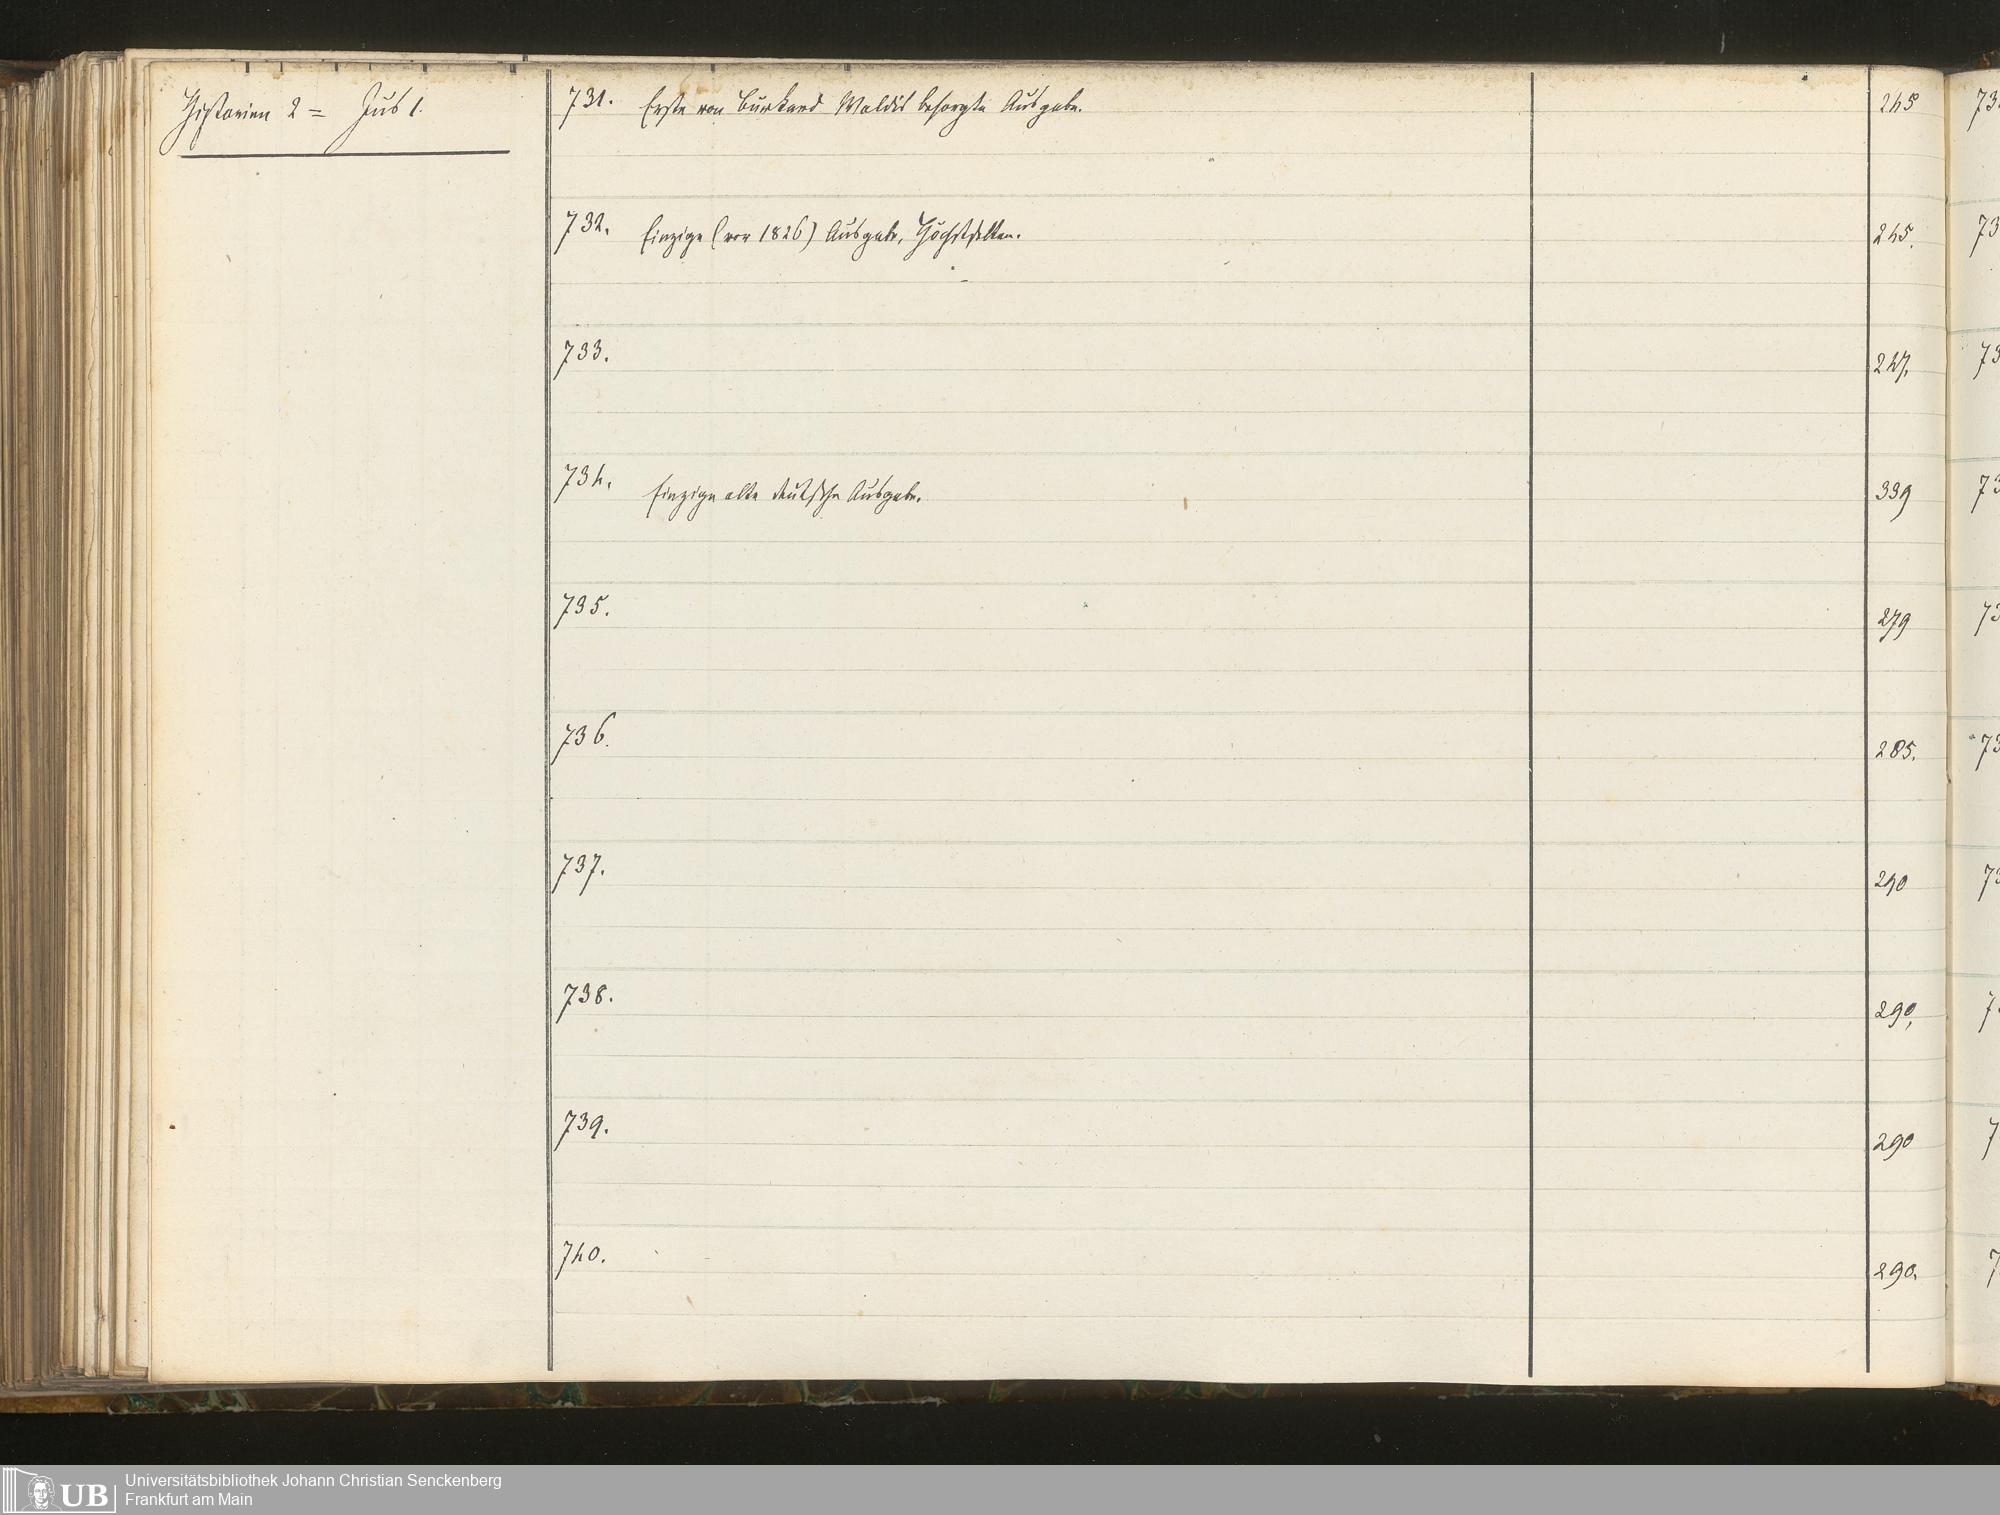 Historien 2 = Jus 1.
731. Erste von Burkard Waldis besorgte Ausgabe. 245
732. Einzige (vor 1826) Ausgabe, Höchstselten. 245.
733. 247.
734. Einzige alte deutsche Ausgabe. 339
735. 279
736. 285.
737. 290
738. 290,
739. 290
740. 290.
UB
Universitätsbibliothek Johann Christian Senckenberg
Frankfurt am Main